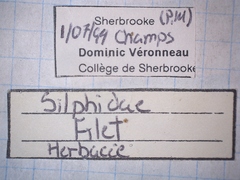 Sherbrooke (P.M)
1/07/99 Champs
Dominic Véronneau
Collège de Sherbrooke
Silphidae
Filet
Herbacée